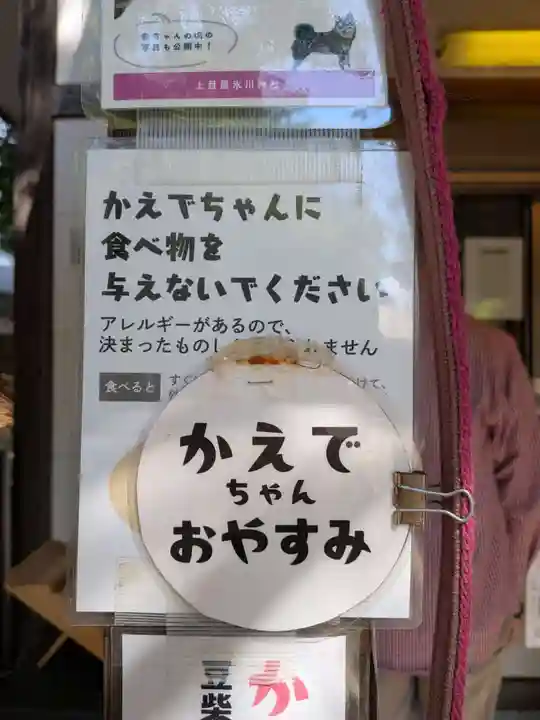 写真も公開中!
上目黒氷川神社
かえでちゃんに
食べ物を
与えないでください
アレルギーがあるので、
決まったものし
ません
食べると
かえで
ちゃん
おやすみ
か
豆柴